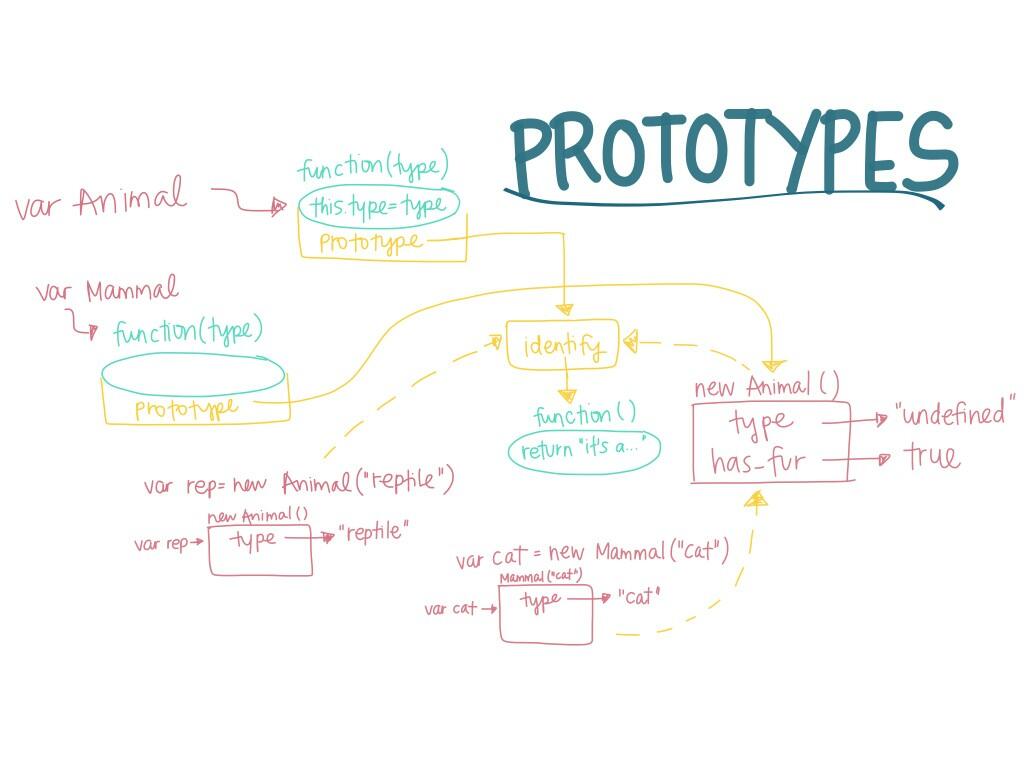 PROTOTYPES
var Animal
function(type)
this.type=type
prototype
var Mammal
function(type)
prototype
identify
function()
return "it's a..."
new Animal()
type
"undefined"
has_fur
true
var rep= new Animal("reptile")
new Animal()
var rep
type
"reptile"
var cat = new Mammal("cat")
Mammal("cat")
var cat
type
"cat"